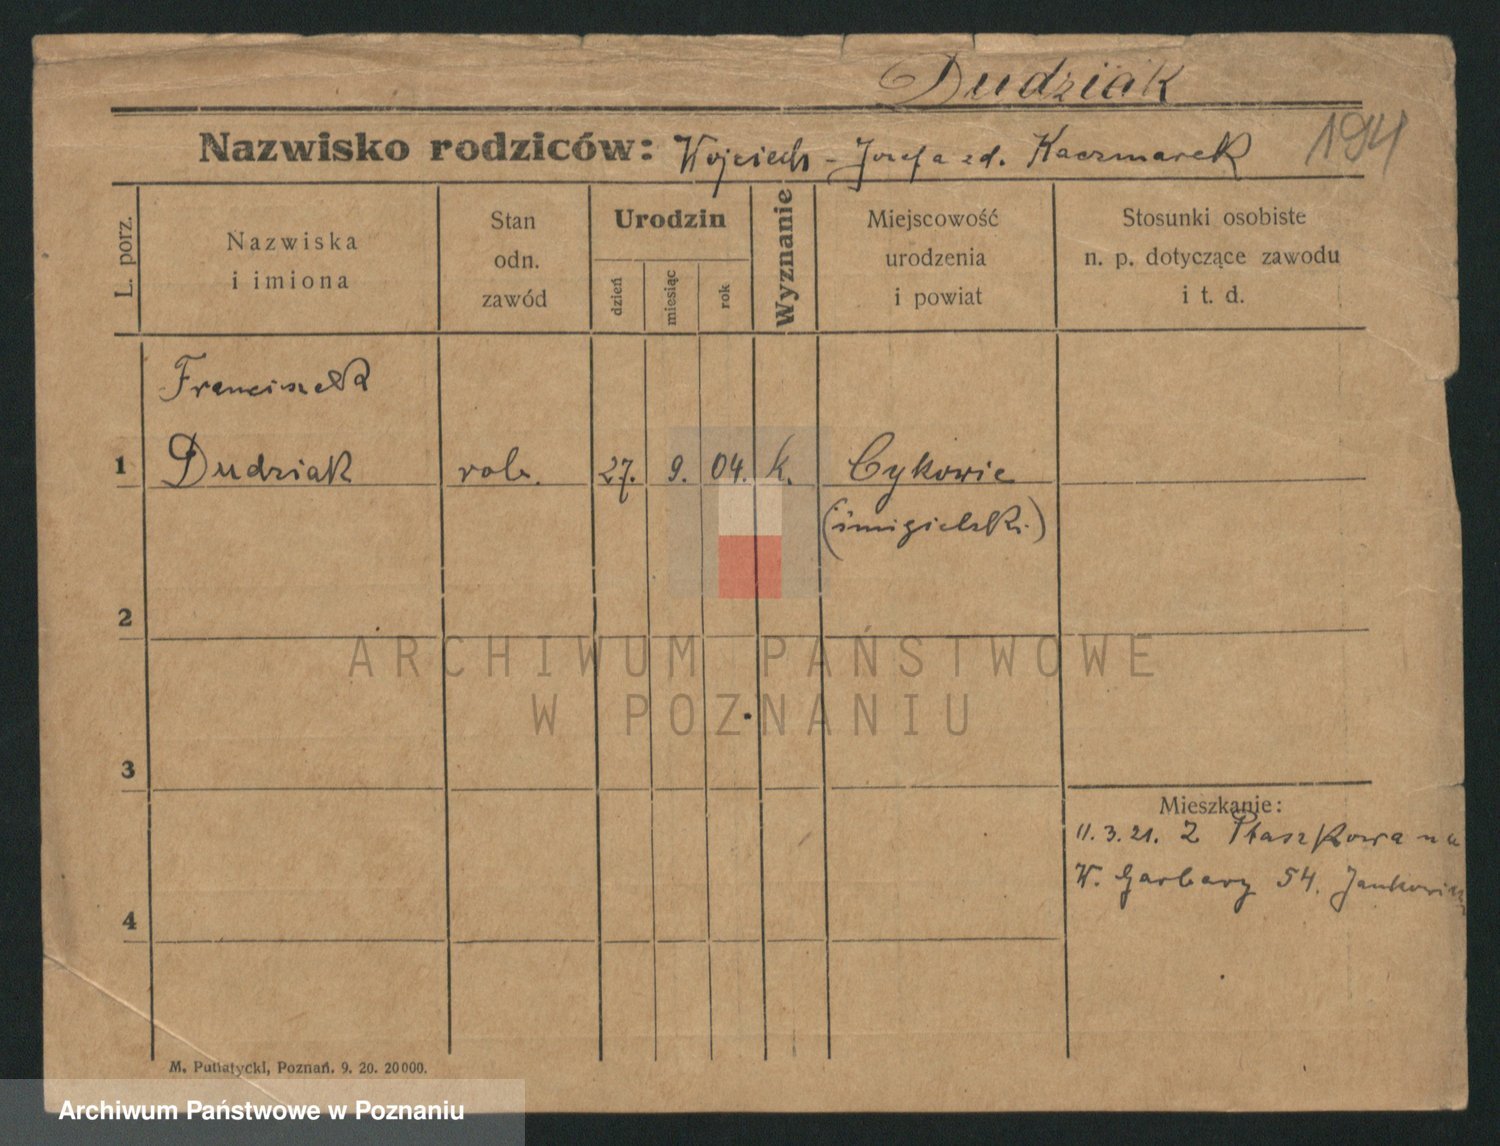 Dudziak
Nazwisko rodziców: Wojciech - Jozefa zd. Kaczmarek
194
L. porz.
Nazwiska
i imiona
Stan
odn.
zawód
Urodzin
dzień
miesiąc
rok
Wyznanie
Miejscowość
urodzenia
i powiat
Stosunki osobiste
n. p. dotyczące zawodu
i t. d.
Franciszek
1 Dudziak rob. 27. 9. 04. k. Cykowie
(śmigielski.)
2
ARCHIWUM PAŃSTWOWE
W POZNANIU
3
Mieszkanie:
11. 3. 21. Z Ptaszkowa na
4 W. Garbary 54.
M. Putiatycki, Poznań. 9. 20. 20000.
Archiwum Państwowe w Poznaniu